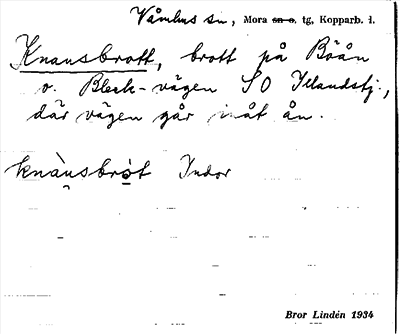 Våmhus sn, Mora sn o. tg, Kopparb. l.
Knausbrott, brott på Böån
o. Bleck-vägen SO Illandstj.,
där vägen går inåt ån.
knàu̯sbrọ̀t Indor
Bror Lindén 1934